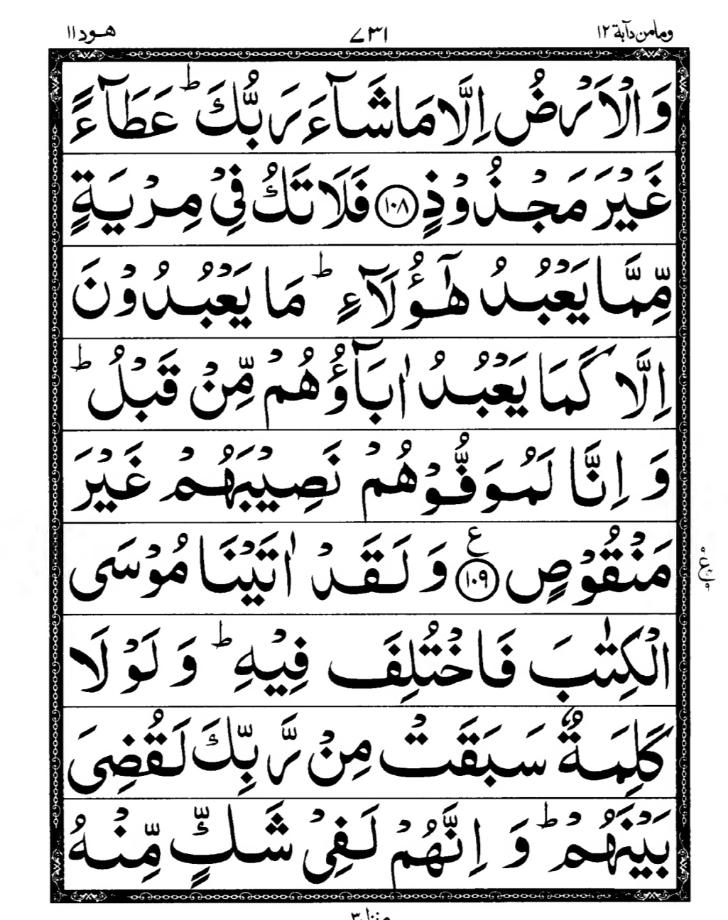 وما من دآبة ١٢ ٧٣١ هود ١١
وَالْاَرْضُ اِلَّا مَا شَآءَ رَبُّكَ ؕ عَطَآءً
غَيْرَ مَجْذُوْذٍ ﴿١٠٨﴾ فَلَا تَكُ فِيْ مِرْيَةٍ
مِّمَّا يَعْبُدُ هٰٓؤُلَآءِ ؕ مَا يَعْبُدُوْنَ
اِلَّا كَمَا يَعْبُدُ اٰبَآؤُهُمْ مِّنْ قَبْلُ ؕ
وَ اِنَّا لَمُوَفُّوْهُمْ نَصِيْبَهُمْ غَيْرَ
مَنْقُوْصٍ ﴿١٠٩﴾ ع وَ لَقَدْ اٰتَيْنَا مُوْسَى
الْكِتٰبَ فَاخْتُلِفَ فِيْهِ ؕ وَ لَوْ لَا
كَلِمَةٌ سَبَقَتْ مِنْ رَّبِّكَ لَقُضِيَ
بَيْنَهُمْ ؕ وَ اِنَّهُمْ لَفِيْ شَكٍّ مِّنْهُ